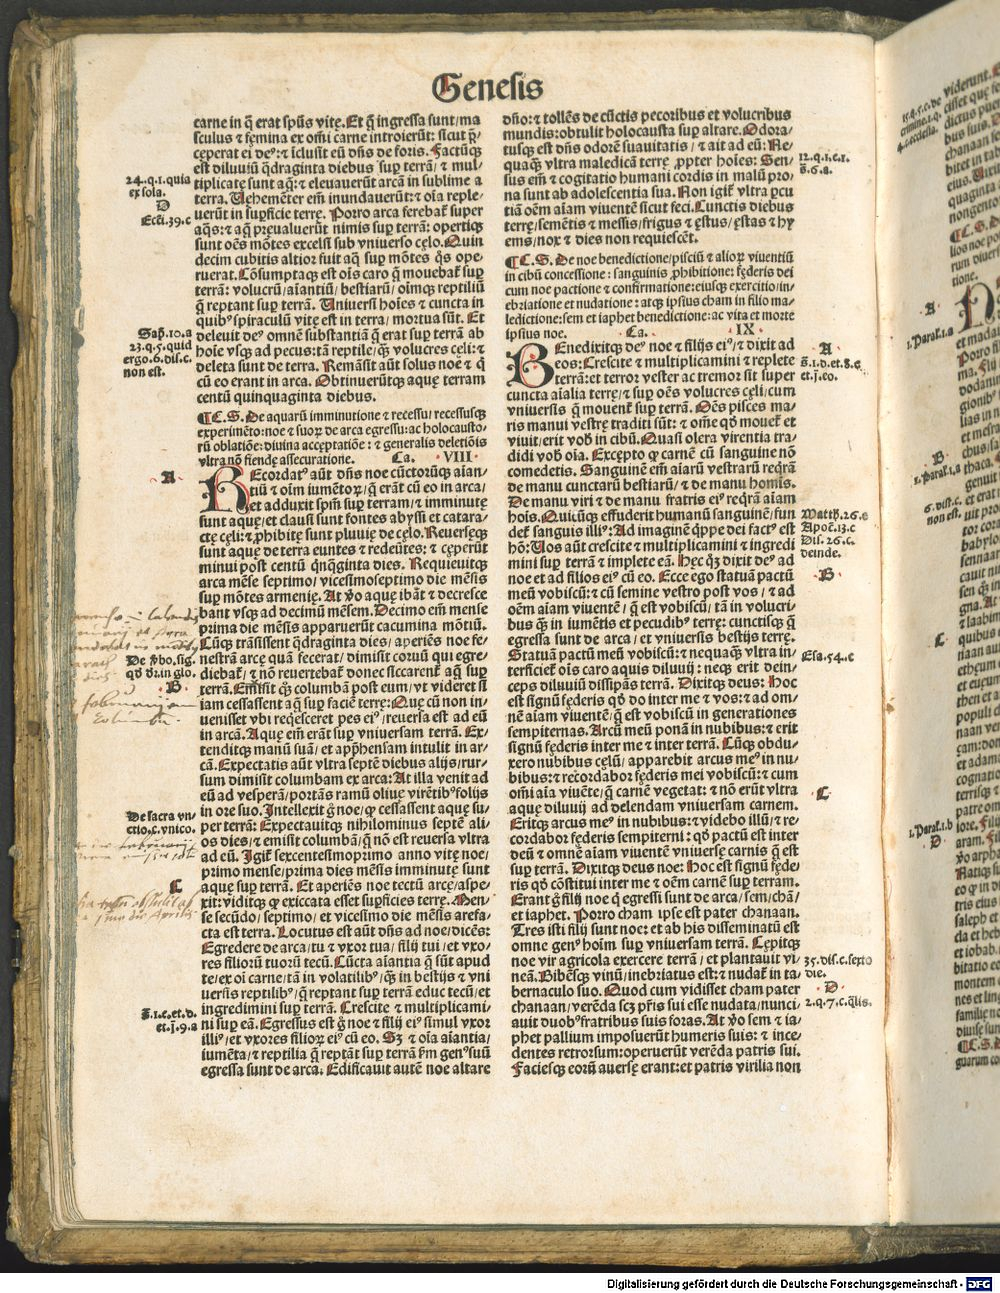 Genesis
carne in q̄ erat spūs vitę. Et q̄ ingressa sunt/ ma
sculus & fęmina ex om̄i carne introierūt: sicut p̄-
ceperat ei deꝰ: & īclusit eū dn̄s de foris. Factūqꝫ
est diluuiū q̄draginta diebus sup̱ terrā/ & mul-
tiplicatę sunt aq̄: & eleuauerūt arcā in sublime a
terra. Uehemēter em̄ inundauerūt: & oīa reple-
uerūt in sup̱ficie terrę. Porro arca ferebat᷑ super
aq̄s: & aq̄ p̄ualuerūt nimis sup̱ terrā: opertiqꝫ
sunt oēs mōtes excelsi sub vniuerso cęlo. Quin
decim cubitis altior fuit aq̄ sup̱ mōtes q̄s ope-
ruerat. Cōsumptaqꝫ est oīs caro q̄ mouebat᷑ sup̱
terrā: volucrū/ aīantiū/ bestiarū/ oīmqꝫ reptiliū
q̄ reptant sup̱ terrā. Uniuersi hoīes & cuncta in
quibꝰ spiraculū vitę est in terra/ mortua sūt. Et
deleuit deꝰ omnē substantiā q̄ erat sup̱ terrā ab
hoīe vsqꝫ ad pecus: tā reptile/ qꝫ volucres cęli: &
deleta sunt de terra. Remāsit aūt solus noe & q̄
cū eo erant in arca. Obtinuerūtqꝫ aquę terram
centū quinquaginta diebus.
¶ C. S. De aquarū imminutione & recessu/ recessusqꝫ
experimēto: noe & suoꝝ de arca egressu: ac holocausto-
rū oblatiōe: diuina acceptatiōe: & generalis deletiōis
vltra nō fiendę assecuratione. Ca. VIII.
Recordatꝰ aūt dn̄s noe cūctorūqꝫ aīan-
tiū & oīm iumētoꝝ/ q̄ erāt cū eo in arca/
et adduxit spm̄ sup̱ terram/ & imminutę
sunt aquę/ et clausi sunt fontes abyssi et catara-
ctę cęli: & ꝓhibitę sunt pluuię de cęlo. Reuersęqꝫ
sunt aquę de terra euntes & redeūtes: & cęperūt
minui post centū q̄nq̄ginta dies. Requieuitqꝫ
arca mēse septimo/ vicesimoseptimo die mēsis
sup̱ mōtes armenię. At v̄o aquę ibāt & decresce
bant vsqꝫ ad decimū mēsem. Decimo em̄ mense
prima die mēsis apparuerūt cacumina mōtiū.
Cūqꝫ trāsissent q̄draginta dies/ aperiēs noe fe-
nestrā arcę quā fecerat/ dimisit coruū qui egre-
diebat᷑/ & nō reuertebat᷑ donec siccarent᷑ aq̄ sup̱
terrā. Emīsit qꝫ columbā post eum/ vt videret si
iam cessassent aq̄ sup̱ faciē terrę: Quę cū non in-
uenisset vbi reqesceret pes eiꝰ/ reuersa est ad eū
in arcā. Aquę em̄ erāt sup̱ vniuersam terrā. Ex-
tenditqꝫ manū suā/ et app̄hensam intulit in ar-
cā. Expectatis aūt vltra septē diebus alijs/ rur-
sum dimisit columbam ex arca: At illa venit ad
eū ad vesperā/ portās ramū oliuę virētibꝰ folijs
in ore suo. Intellexit ḡ noe/ qꝙ cessassent aquę su-
per terrā: Expectauitqꝫ nihilominus septē ali-
os dies/ & emisit columbā/ q̄ nō est reuersa vltra
ad eū. Igit᷑ sexcentesimoprimo anno vitę noe/
primo mense/ prima dies mēsis imminutę sunt
aquę sup̱ terrā. Et aperiēs noe tectū arcę/ aspe-
xit: viditqꝫ qꝙ exiccata esset sup̱ficies terrę. Men-
se secūdo/ septimo/ et vicesimo die mēsis arefa-
cta est terra. Locutus est aūt dn̄s ad noe/ dicēs:
Egredere de arca/ tu & vxor tua/ filij tui/ et vxo-
res filiorū tuorū tecū. Cūcta aīantia q̄ sūt apud
te/ ex oī carne/ tā in volatilibꝰ/ qꝫ in bestijs & vni
uersis reptilibꝰ/ q̄ reptant sup̱ terrā educ tecū/ et
ingredimini sup̱ terrā. Crescite & multiplicami-
ni sup̱ eā. Egressus est ḡ noe & filij eiꝰ simul vxor
illiꝰ/ et vxores filioꝝ eiꝰ cū eo. Sꝫ & oīa aīantia/
iumēta/ & reptilia q̄ reptāt sup̱ terrā ẜm genꝰ suū
egressa sunt de arca. Edificauit autē noe altare
dn̄o: & tollēs de cūctis pecoribus et volucribus
mundis: obtulit holocausta sup̱ altare. Odora-
tusqꝫ est dn̄s odorē suauitatis/ & ait ad eū: Ne-
quaqꝫ vltra maledicā terrę ꝓpter hoīes: Sen-
sus em̄ & cogitatio humani cordis in malū pro-
na sunt ab adolescentia sua. Non igit᷑ vltra pcu
tiā oēm aīam viuentē sicut feci. Cunctis diebus
terrę/ semētis & messis/ frigus & ęstus/ ęstas & hy
ems/ nox & dies non requiescēt.
¶ C. S. De noe benedictione/ pisciū & alioꝝ viuentiū
in cibū concessione: sanguinis ꝓhibitione: fęderis dei
cum noe pactione & confirmatione: eiusqꝫ exercitio/ in-
ebriatione et nudatione: atqꝫ ipsius cham in filio ma-
ledictione: sem et iaphet benedictione: ac vita et morte
ipsius noe. Ca. IX.
Benedixitqꝫ deꝰ noe & filijs eiꝰ/ & dixit ad
eos: Crescite & multiplicamini & replete
terrā: et terror vester ac tremor sit super
cuncta aīalia terrę/ & sup̱ oēs volucres cęli/ cum
vniuersis q̄ mouent᷑ sup̱ terrā. Oēs pisces ma-
ris manui vestrę traditi sūt: & om̄e qd̄ mouet᷑ et
viuit/ erit vob̄ in cibū. Quasi olera virentia tra-
didi vob̄ oīa. Excępto qꝙ carnē cū sanguine nō
comedetis. Sanguinē em̄ aīarū vestrarū reqrā
de manu cunctarū bestiarū/ & de manu homīs.
De manu viri & de manu fratris eiꝰ reqrā aīam
hoīs. Quicūqꝫ effuderit humanū sanguinē/ fun
det᷑ sanguis illiꝰ: Ad imaginē q̄ppe dei factꝰ est
hō: Uos aūt crescite & multiplicamini & ingredi
mini sup̱ terrā & implete eā. Hęc qꝫ dixit deꝰ ad
noe et ad filios eiꝰ cū eo. Ecce ego statuā pactū
meū vobiscū: & cū semine vestro post vos/ & ad
oēm aīam viuentē/ q̄ est vobiscū/ tā in volucri-
bus qꝫ in iumētis et pecudibꝰ terrę: cunctisqꝫ q̄
egressa sunt de arca/ et vniuersis bestijs terrę.
Statuā pactū meū vobiscū: & nequaqꝫ vltra in-
terficiet᷑ oīs caro aquis diluuij: neqꝫ erit dein-
ceps diluuiū dissipās terrā. Dixitqꝫ deus: Hoc
est signū fęderis qd̄ do inter me & vos: & ad om-
nē aīam viuentē/ q̄ est vobiscū in generationes
sempiternas. Arcū meū ponā in nubibus: & erit
signū fęderis inter me & inter terrā. Cūqꝫ obdu-
xero nubibus cęlū/ apparebit arcus meꝰ in nu-
bibus: & recordabor fęderis mei vobiscū: & cum
om̄i aīa viuēte/ q̄ carnē vegetat: & nō erūt vltra
aquę diluuij ad delendam vniuersam carnem.
Eritqꝫ arcus meꝰ in nubibus: & videbo illū/ & re-
cordabor fęderis sempiterni: qd̄ pactū est inter
deū & omnē aīam viuentē vniuersę carnis q̄ est
sup̱ terrā. Dixitqꝫ deus noe: Hoc est signū fęde-
ris qd̄ cōstitui inter me & oēm carnē sup̱ terram.
Erant ḡ filij noe q̄ egressi sunt de arca/ sem/ chā/
et iaphet. Porro cham ipse est pater chanaan.
Tres isti filij sunt noe: et ab his disseminatū est
omne genꝰ hoīm sup̱ vniuersam terrā. Cępitqꝫ
noe vir agricola exercere terrā/ et plantauit vi-
neā. Bibēsqꝫ vinū/ inebriatus est: & nudat᷑ in ta-
bernaculo suo. Quod cum vidisset cham pater
chanaan/ verēda scꝫ p̄ris sui esse nudata/ nunci-
auit duobꝰ fratribus suis foras. At v̄o sem & ia-
phet pallium imposuerūt humeris suis: & ince-
dentes retrorsum: operuerūt verēda patris sui.
Faciesqꝫ eorū auersę erant: et patris virilia non
24. q. 1. quia
ex sola.
D
Eccī. 39. c
Sap̄. 10. a
23. q. 5. quid
ergo. 6. dis. c.
non est.
A
De v̄bo. sig.
B
De sacra vn-
ctio. c. vnico.
C
12. q. 1. c. 1.
A
Matth. 26. e
Apoc̄. 13. c
Dis. 26. c.
deinde.
B
Esa. 54. c
C
35. dis. c. sexto
die.
D
2. q. 7. c. q̄lis.
A
1. Paral. 1. a
B
1. Paral. 1. a
6. dist. c.
non est.
C
1. Paral. 1. b
D
Digitalisierung gefördert durch die Deutsche Forschungsgemeinschaft - DFG